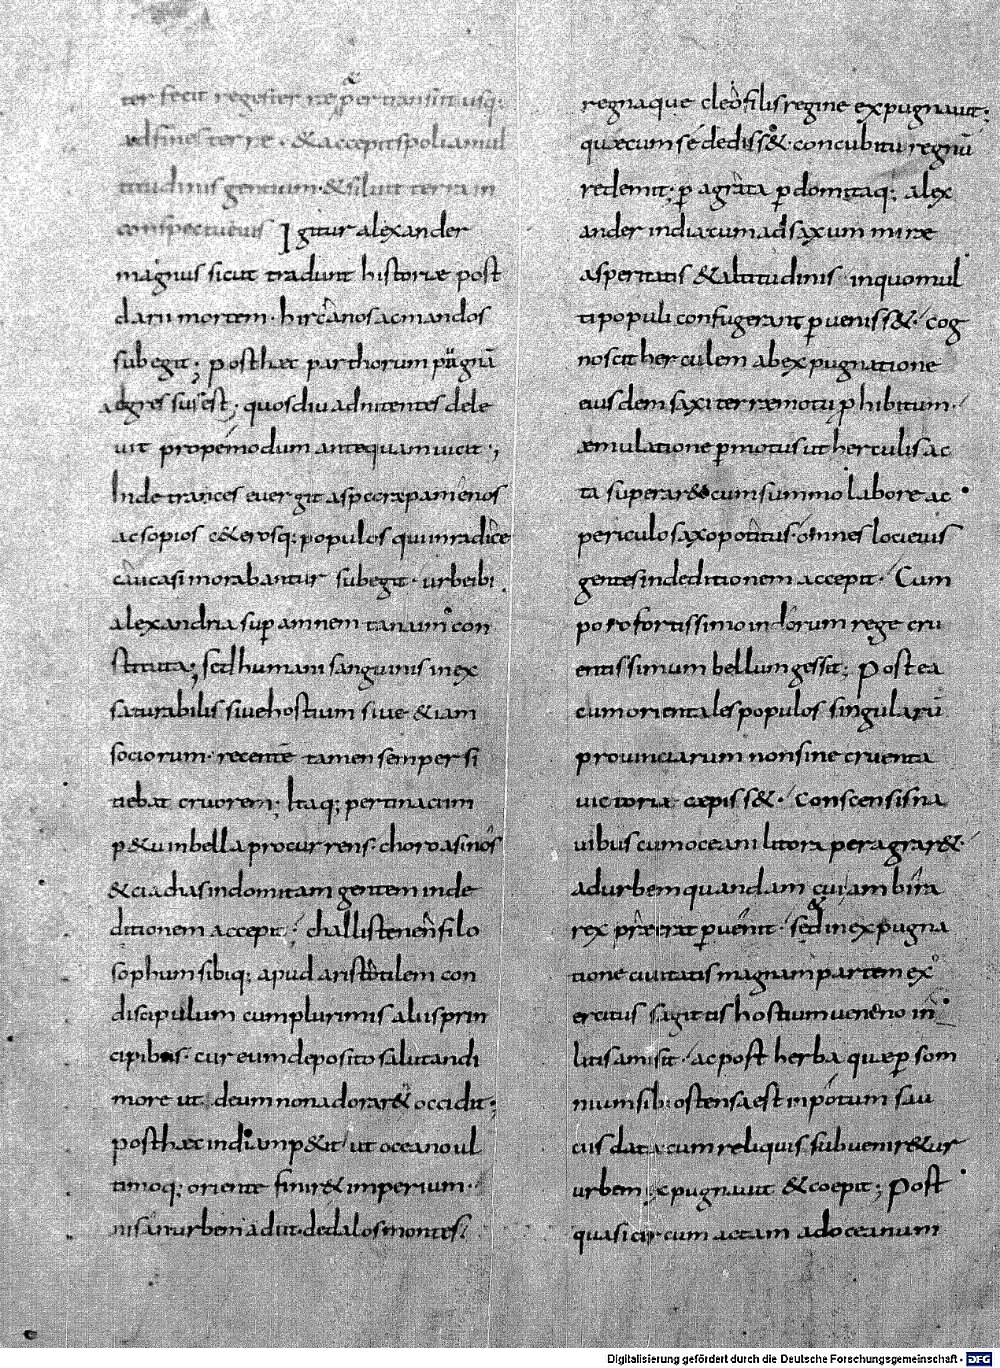 ter fecit reges terrae & pertransiit usq;
ad fines terrae · & accepit spolia mul
titudinis gentium · & siluit terra in
conspectu eius Igitur alexander
magnus sicut tradunt historiae post
darii mortem · hircanos ac mandos
subegit; post haec parthorum pugnā
adgressus est; quos diu adnitentes dele
vit propemodum antequam vicit;
Inde trances euergitas parapamenos
ac sopios c&erosq; populos qui in radice
caucasi morabantur subegit · urbe ibi
alexandria sup amnem tanaim con
stituta; sed humani sanguinis inex
saturabilis sive hostium sive &iam
sociorum · recentē tamen semper si
tiebat cruorem; Itaq; pertinacum
p&u in bella procurrens · chorasinos
& ciadas indomitam gentem in de
ditionem accepit; challistenen filo
sophum sibiq; apud aristotilem con
discipulum cum plurimis aliis prin
cipibus · cur eum deposito salutandi
more ut deum non adorar& occidit;
post haec indiam p&it ut oceano ul
timoq; oriente finir& imperium ·
nisan urbem adiit · dedalos montes
regnaque cleofilis regine expugnavit;
quae cum se dediss& · concubitu regnū
redemit; p agrata p domitaq; alex
ander india cum ad saxum mirae
asperitatis & altitudinis in quo mul
ti populi confugerant pueniss& · cog
noscit herculem ab expugnatione
eiusdem saxi terraemotu p hibitum ·
aemulatione pmotus ut herculis ac
ta superar& cum summo labore ac
periculo saxo potitus · omnes loci eius
gentes in deditionem accepit · Cum
poro fortissimo indorum rege cru
entissimum bellum gessit; Post ea
cum orientales populos singularū
provinciarum non sine cruenta
victoria caepiss& · conscensis na
vibus cum oceani litora peragrar& ·
ad urbem quandam cui ambira
rex praeerat puenit · sed in expugna
tione civitatis magnam partem ex
ercitus sagittis hostium veneno in
litis amisit · ac post herba quae p som
nium sibi ostensa est in potum sau
ciis data cum reliquis subvenir&ur
urbem expugnavit & coepit; Post
quasi circum actam ad oceanum
Digitalisierung gefördert durch die Deutsche Forschungsgemeinschaft - DFG